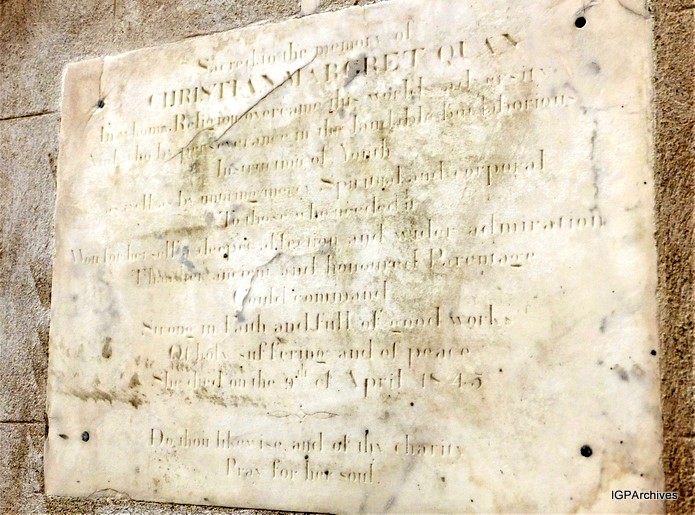 Sacred to the memory of
CHRISTIAN MARGRET QUAN
In whom Religion overcame this worlds adversity
And who by perseverance in the laudable tho laborious
Instruction of Youth
as well as by untiring mercy Spiritual and corporal
To those who needed it
Won for herself a deeper affection and wider admiration
Than her ancient and honoured Parentage
Could command
Strong in Faith and full of good works
Of holy suffering and of peace
She died on the 9th of April 1845
Do thou likewise, and of thy charity
Pray for her soul
IGPArchives